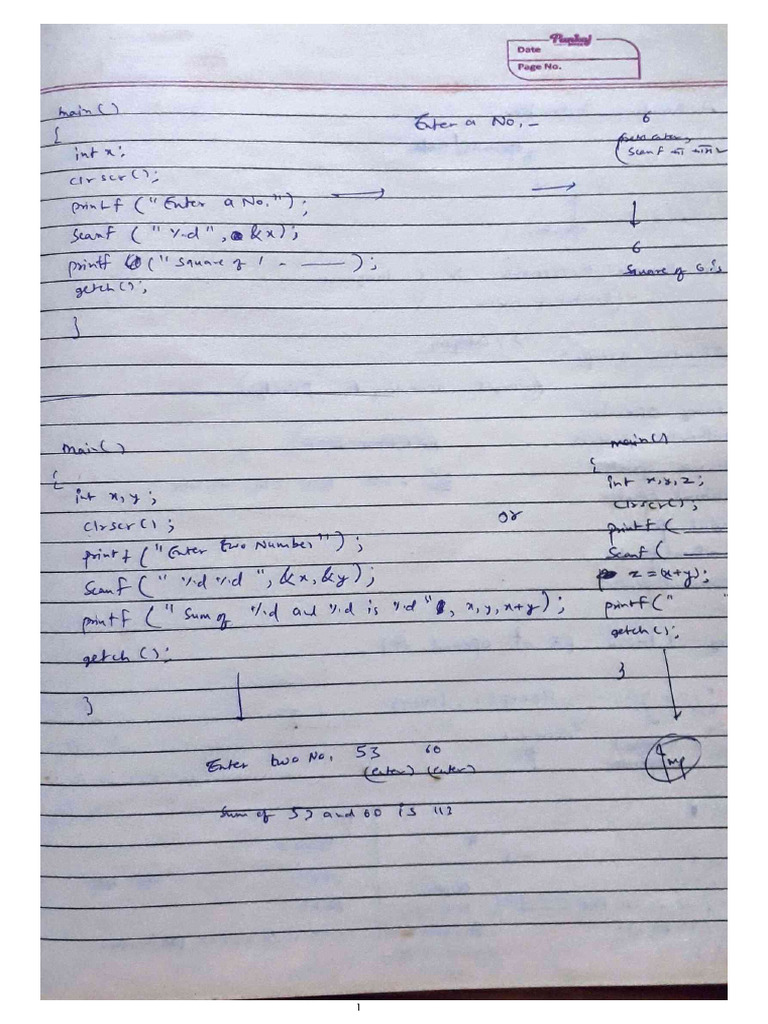 Pankaj
Date
Page No.
main()
{
int x;
clrscr();
printf ("Enter a No.");
scanf ("%d", &x);
printf ("Square of
getch();
}
Enter a No. -
6
scanf
6
Square of 6 is
main()
{
int x, y;
clrscr();
printf ("Enter two Number");
scanf ("%d %d", &x, &y);
printf ("Sum of %d and %d is %d", x, y, x+y);
getch();
}
or
main()
{
int x, y, z;
clrscr();
printf (
scanf (
z = (x+y);
printf(" "
getch();
}
Imp
Enter two No. 53 60
(enter) (enter)
Sum of 53 and 60 is 113
1